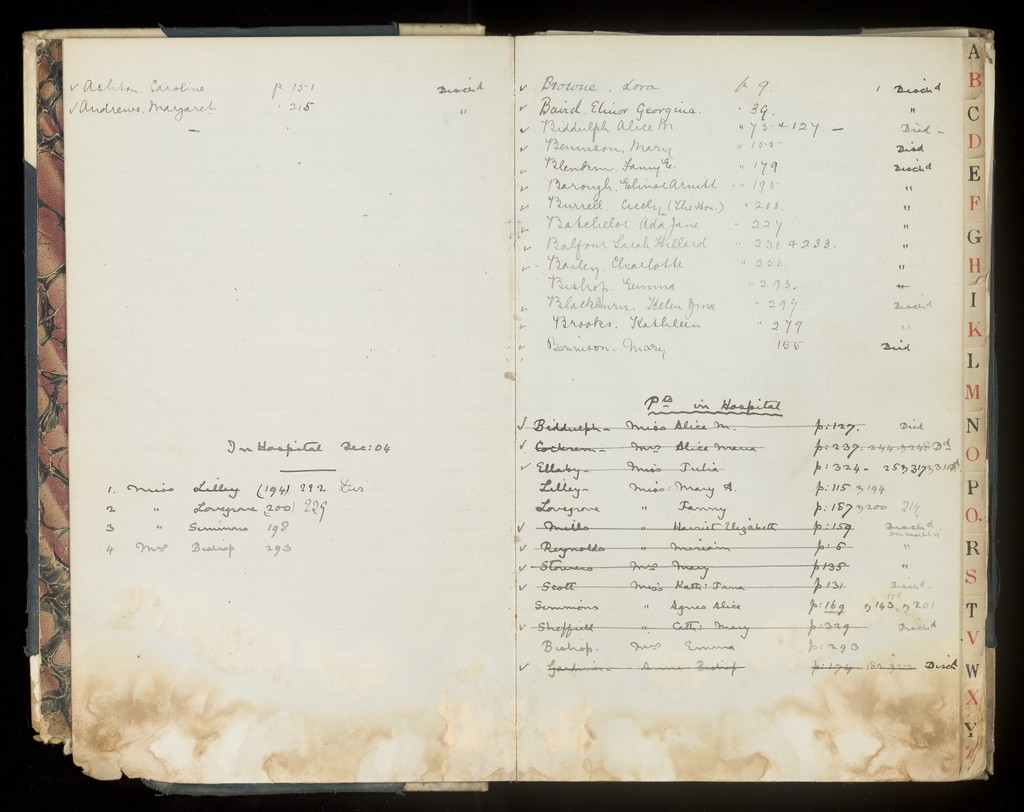 ✓ Ashton. Caroline p. 151 Disch'd
✓ Andrews. Margaret " 215 "
In Hospital Dec: 04
1. Miss Lilley (194) 292
2 " Lovegrove (200) 229
3 " Simmons 198
4 Mrs Bishop 293
✓ Browne. Lora p 9. Disch'd
✓ Baird. Elinor Georgina. " 39. "
✓ Biddulph Alice M " 75 & 127. — Died —
✓ Bennison, Mary " 155 Died
✓ Blenkin Fanny E. " 179 Disch'd
✓ Barough. Elinor " 195 "
✓ Burrell. Cicely (The Hon.) " 200 "
✓ Batchelor Ada Jane " 227 "
✓ Balfour Sarah Hillard " 231 & 233. "
✓ Bailey. Charlotte " 253. "
Bishop. Emma " 293.
✓ Blackburn. Helen " 297 Disch'd
✓ Brooks. Kathleen " 279 "
✓ Bennison. Mary 155 Died
Pts in Hospital
✓ Biddulph — Miss Alice M. p: 127. Died
✓ Cockrem — Mrs Alice Maria p: 237. 244 D'd
✓ Ellaby — Miss Julia p: 324 -
Lilley — Miss Mary A. p: 115 & 194
Lovegrove " Fanny p: 187 & 200 214
✓ Mills " Harriet Elizabeth p: 159 Disch'd
✓ Reynolds " Miriam p: 5 "
✓ Stowers Mrs Mary p 135 "
✓ Scott Miss Kath: Jane p 131 Disch'd
Simmons " Agnes Alice p: 169 & 143 & 201
✓ Sheffield " Cath: Mary p: 329 Disch'd
Bishop. Mrs Emma p: 293
✓ Gardiner — Annie Bishop p: 174 Disch'd
A
B
C
D
E
F
G
H
I
K
L
M
N
O
P
Q
R
S
T
V
W
X
Y
Z